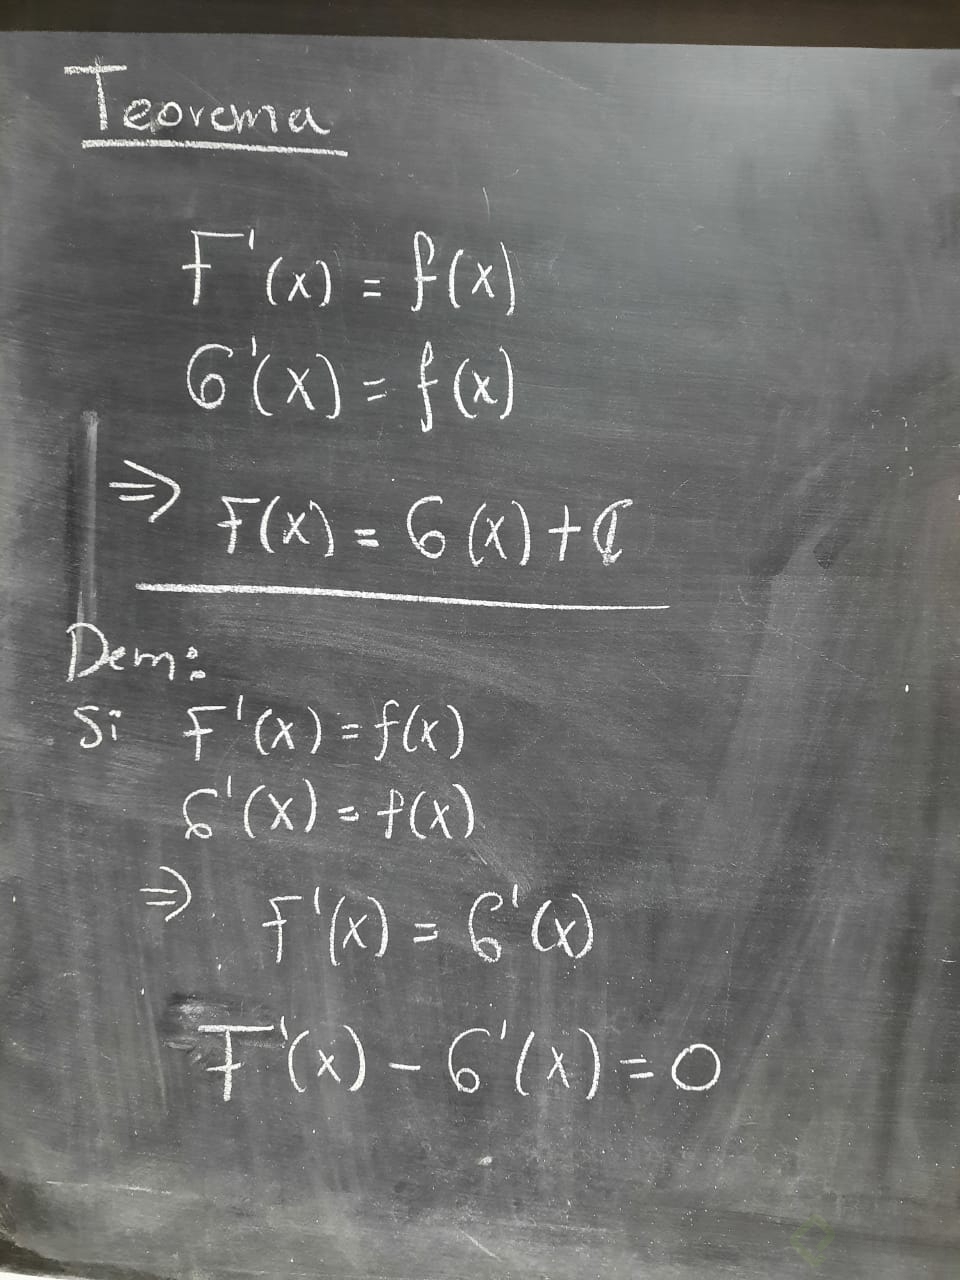 Teorema
F'(x) = f(x)
G'(x) = f(x)
⇒ F(x) = G(x) + C
Dem:
Si F'(x) = f(x)
G'(x) = f(x)
⇒ F'(x) = G'(x)
F'(x) - G'(x) = 0